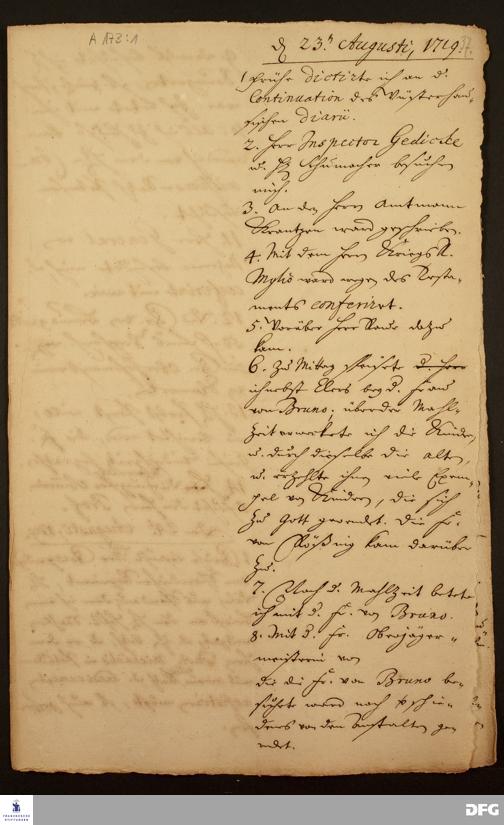 A 173:1
d. 23.n Augusti, 1719.
1. Frühe dictirte ich an d.
Continuation des Wüsterhau-
sischen Diarii.
2. Herr Inspector Gedicke
u. H. Schumacher besuchen
mich.
3. An den Herrn Amtmann
Krantzen ward geschrieben.
4. Mit dem Herrn KriegsR.
Mylio ward wegen des Testa-
ments conferiret.
5. Worüber Herr dazu
kam.
6. Zu Mittag speisete d. Herr
ich nebst Elers bey d. Frau
von Bruno; über der Mahl-
zeit erweckete ich die Kinder,
u. durch dieselbe die alten,
u. erzehlte ihnen viele Exem-
pel von Kindern, die sich
zu Gott gewendet. Die Fr.
von kam darüber
zu.
7. Nach d. Mahlzeit betete
ich mit d. Fr. von Bruno.
8. Mit d. Fr. Oberjäger-
meisterin von
die die Fr. von Bruno be-
suchete ward noch
von den Anstalten ge
redet.
FRANCKESCHE STIFTUNGEN
DFG